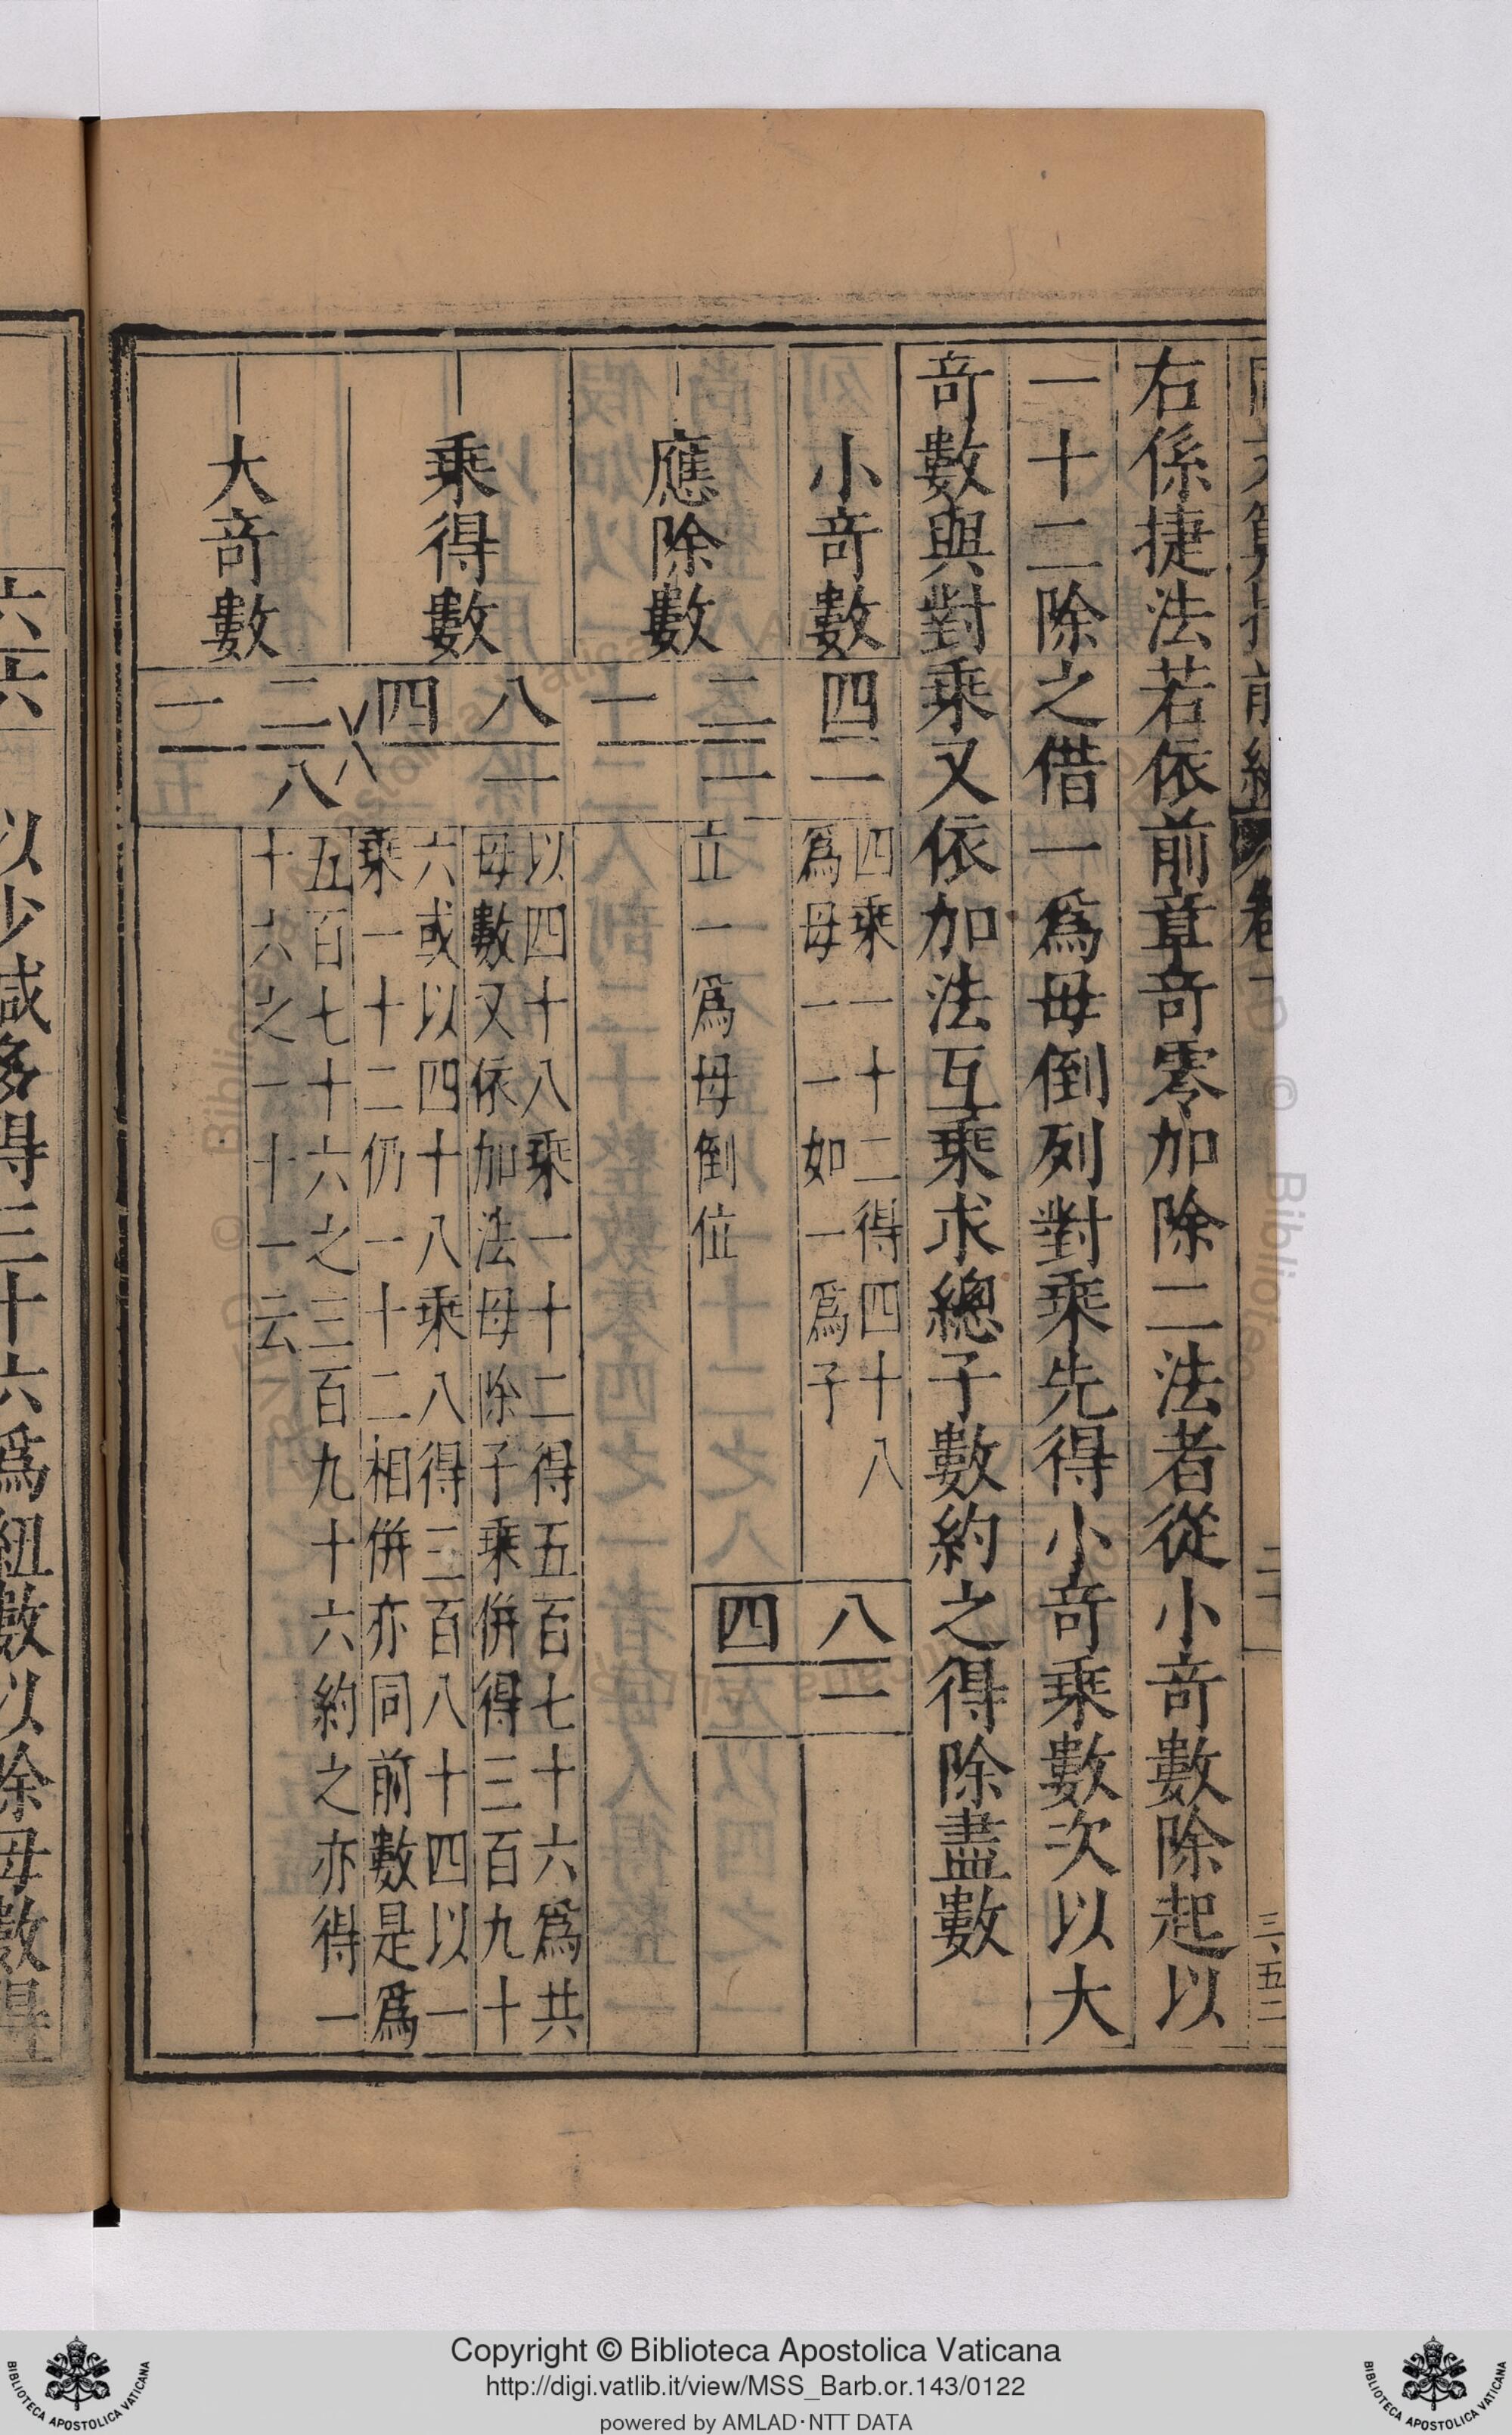 右係捷法若依前章竒零加除二法者從小竒數除起以
一十二除之借一爲母倒列對乘先得小竒乘數次以大
竒數與對乘又依加法互乘求總子數約之得除盡數
小竒數
四一
四乘一十二得四十八
爲母一一如一爲子
八二
應除數
二一
一
立一爲母倒位
四
乘得數
八一
四
以四十八乘一十二得五百七十六爲共
母數又依加法母除子乘併得三百九十
六或以四十八乘八得三百八十四以一
乘一十二仍一十二相併亦同前數是爲
大竒數
二八
一
五百七十六之三百九十六約之亦得一
十六之一十一云
以少減多得三十六爲紐數以除母數得
Copyright © Biblioteca Apostolica Vaticana
http://digi.vatlib.it/view/MSS_Barb.or.143/0122
powered by AMLAD·NTT DATA